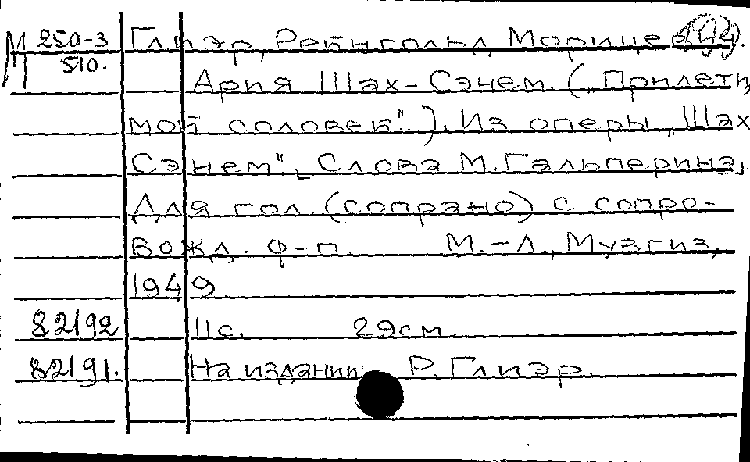 М 250-3
510.
Глиэр, Рейнгольд Морицевич.
Ария Шах-Сэнем. („Прилети,
мой соловей"). Из оперы „Шах
Сэнем". Слова М. Гальперина,
Для гол. (сопрано) с сопро-
вожд. ф-п. М.-Л., Музгиз,
1949.
82192 11с. 29см.
82191. На издании: Р. Глиэр.